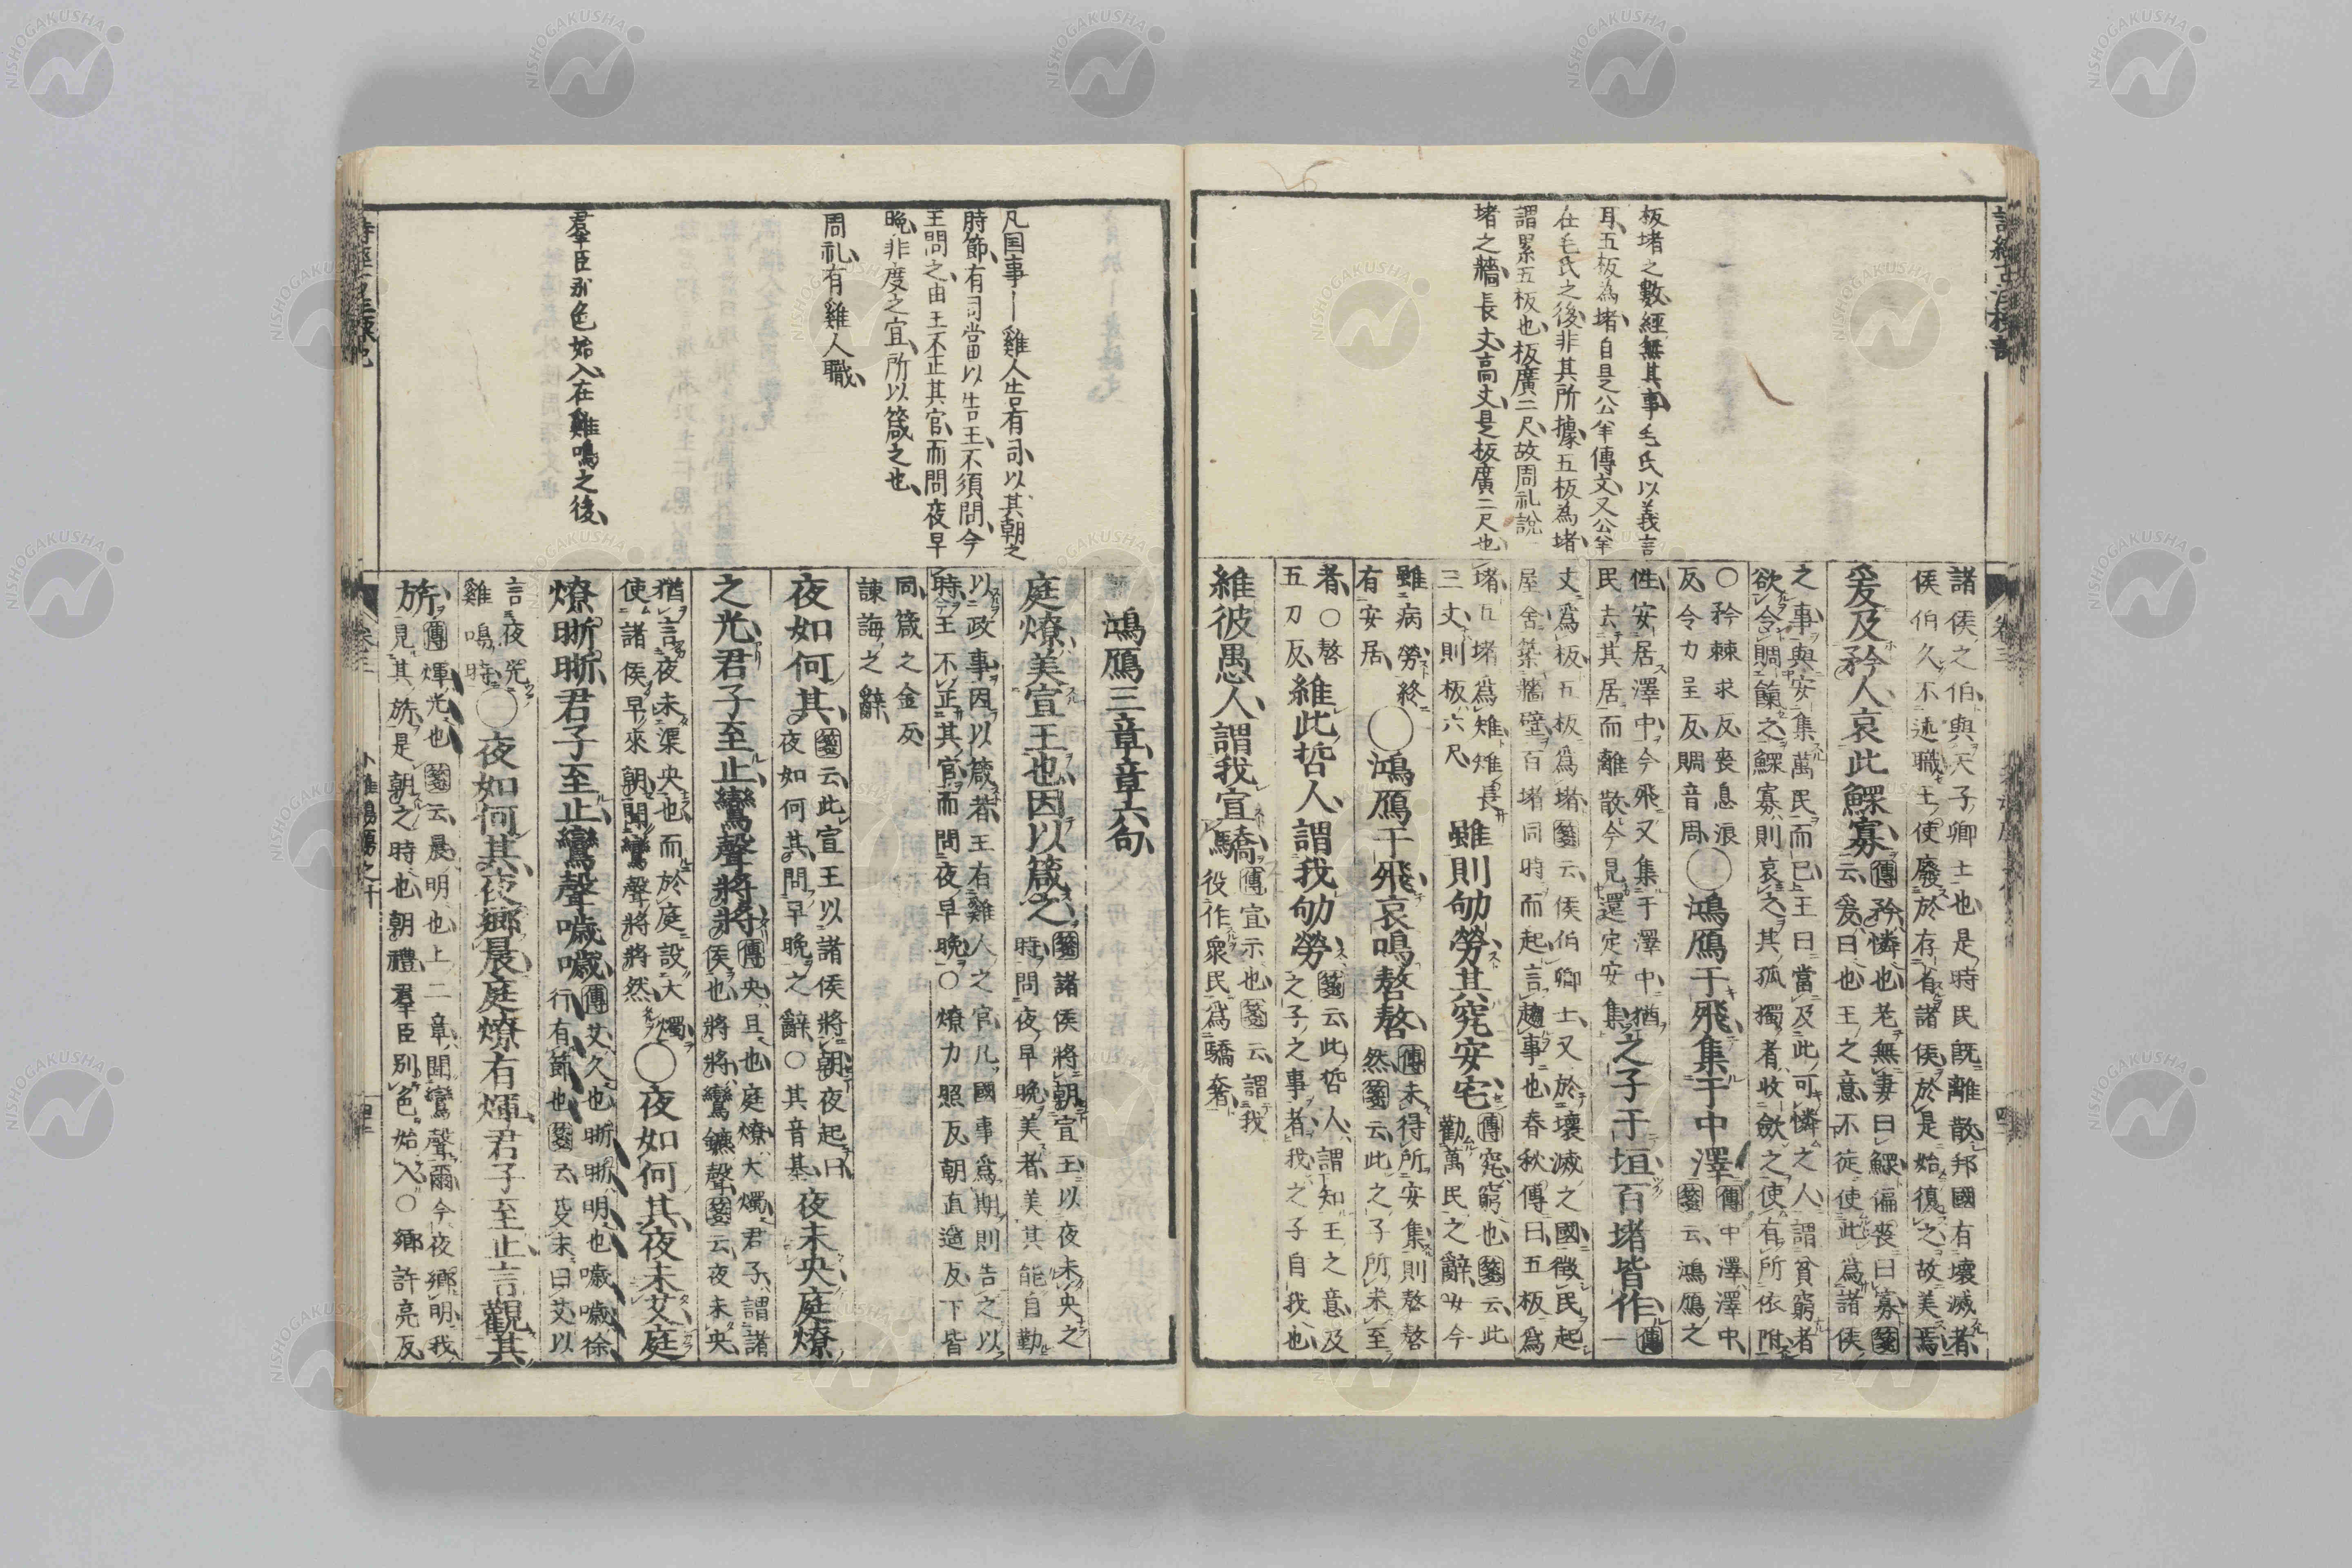 板堵之數經無其事毛氏以義言
耳五板為堵自是公羊傳文又公羊
在毛氏之後非其所據五板為堵
謂累五板也板廣二尺故周礼說一
堵之牆長丈高丈是板廣二尺也
諸侯之伯與天子卿士也是時民既離散邦國有壞滅者
侯伯久不述職王使廢於存省諸侯於是始復之故美焉
爰及矜人哀此鰥寡傳矜憐也老無妻曰鰥偏喪曰寡箋
云爰曰也王之意不徒使此為諸侯
之事與安集萬民而已王曰當及此可憐之人謂貧窮者
欲令賙餼之鰥寡則哀之其孤獨者收斂之使有所依附
〇矜棘求反喪息浪
反令力呈反賙音周〇鴻鴈于飛集于中澤傳中澤澤中
箋云鴻鴈之
性安居澤中今飛又集于澤中猶
民去其居而離散今見還定安集之子于垣百堵皆作傳一
丈爲板五板爲堵箋云侯伯卿士又於壞滅之國徵民起
屋舍築牆壁百堵同時而起言趨事也春秋傳曰五板爲
堵五堵爲雉雉長
三丈則板六尺雖則劬勞其究安宅傳究窮也箋云此
勸萬民之辭女今
雖病勞終
有安居〇鴻鴈于飛哀鳴嗸嗸傳未得所安集則嗸嗸
然箋云此之子所未至
者〇嗸
五刀反維此哲人謂我劬勞箋云此哲人謂知王之意及
之子之事者我之子自我也
維彼愚人謂我宣驕傳宣示也箋云謂我
役作衆民爲驕奢
凡国事ー雞人告有司以其朝之
時節有司當以告王不須問今
王問之由王不正其官而問夜早
晩非度之宜所以箴之也
周礼有雞人職
羣臣別色始入在雞鳴之後
鴻鴈三章章六句
庭燎美宣王也因以箴之箋諸侯將朝宣王以夜未央之
時問夜早晩美者美其能自勤
以政事因以箴者王有雞人之官凡國事爲期則告之以
時今王不正其官而問夜早晩〇燎力照反朝直遥反下皆
同箴之金反
諫誨之辭
夜如何其箋云此宣王以諸侯將朝夜起曰
夜如何其問早晩之辭〇其音基夜未央庭燎
之光君子至止鸞聲將將傳央且也庭燎大燭君子謂諸
侯也將將鸞鑣聲箋云夜未央
猶言夜未渠央也而於庭設大燭
使諸侯早來朝聞鸞聲將將然〇夜如何其夜未艾庭
燎晣晣君子至止鸞聲噦噦傳艾久也晣晣明也噦噦徐
行有節也箋云芟末曰艾以
言夜先
雞鳴時〇夜如何其夜鄉晨庭燎有煇君子至止言觀其
旂傳煇光也箋云晨明也上二章聞鸞聲爾今夜鄉明我
見其旂是朝之時也朝禮羣臣別色始入〇鄉許亮反